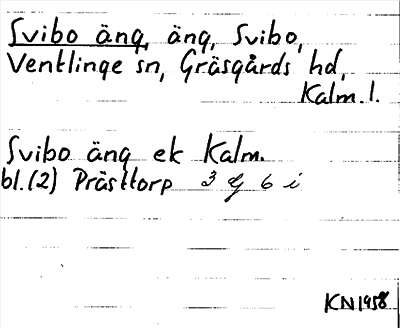 Svibo äng, äng, Svibo,
Ventlinge sn, Gräsgårds hd,
Kalm. l.
Svibo äng ek Kalm.
bl. (2) Prästtorp 3 G 6 i
KN 1958